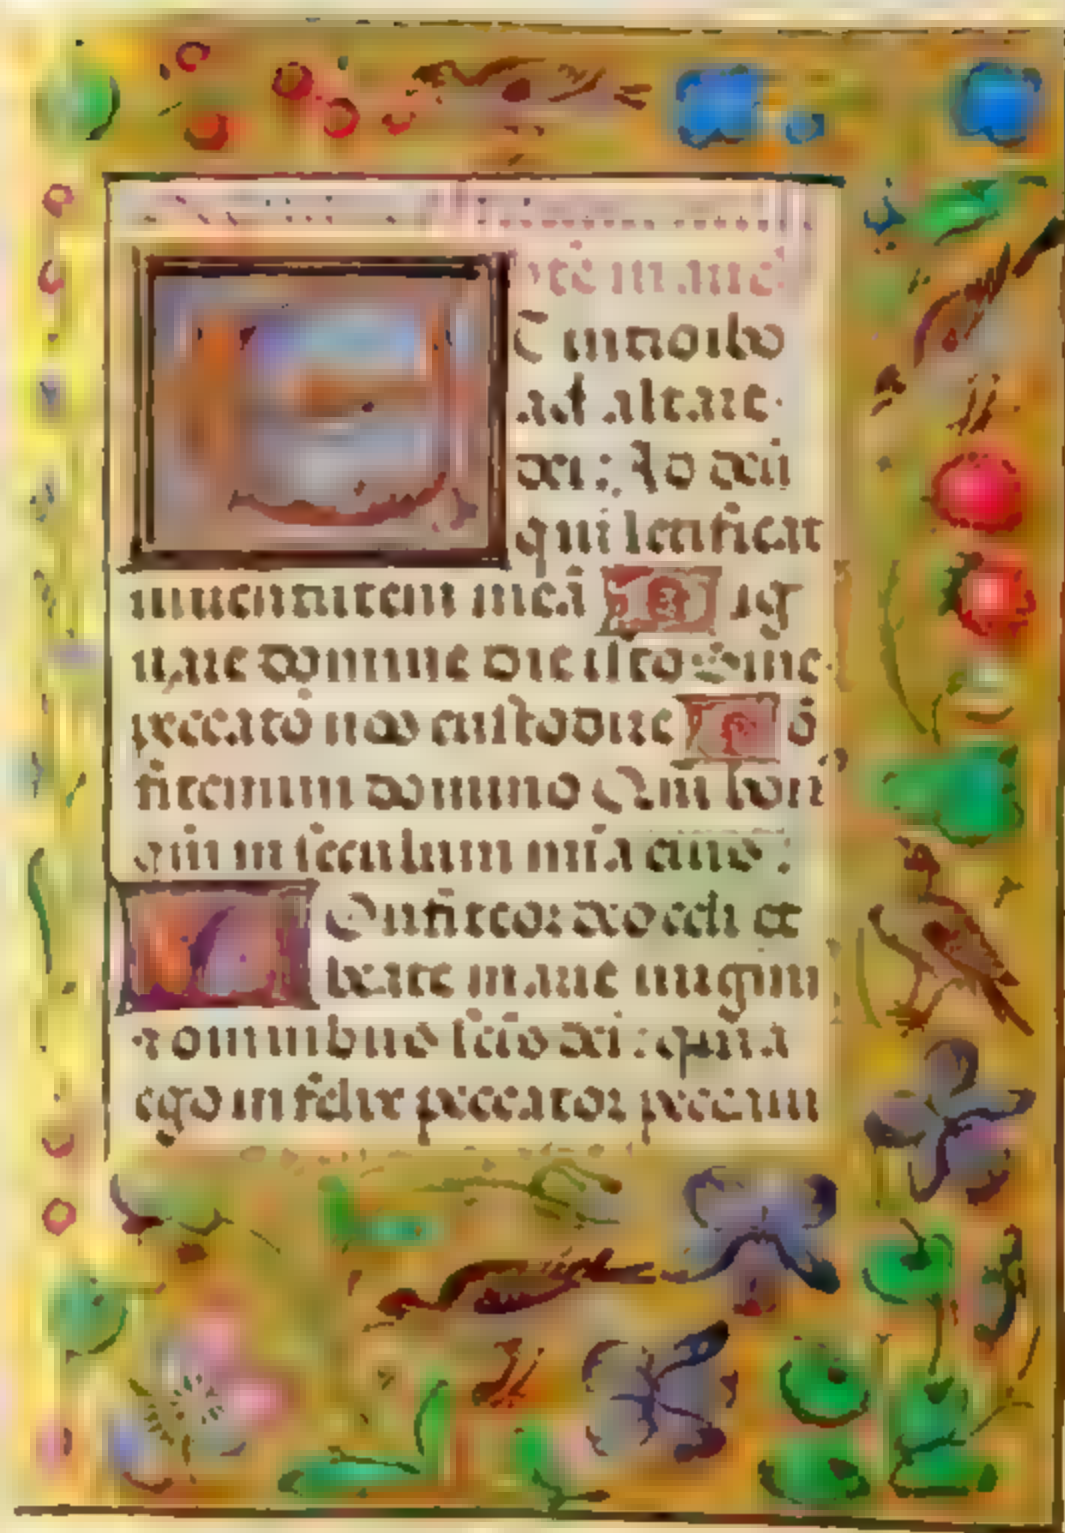 Et introibo
ad altare
dei: Ad deū
qui letificat
iuuentutem meā A dig
nare domine die isto sine
peccato nos custodire C ō
fitemini domino Qm̄ bon
qm̄ in seculum mīa eius:
Onfiteor deo celi et
beate marie uirgini
⁊ omnibus sc̄is dei: quia
ego infelix peccator peccaui